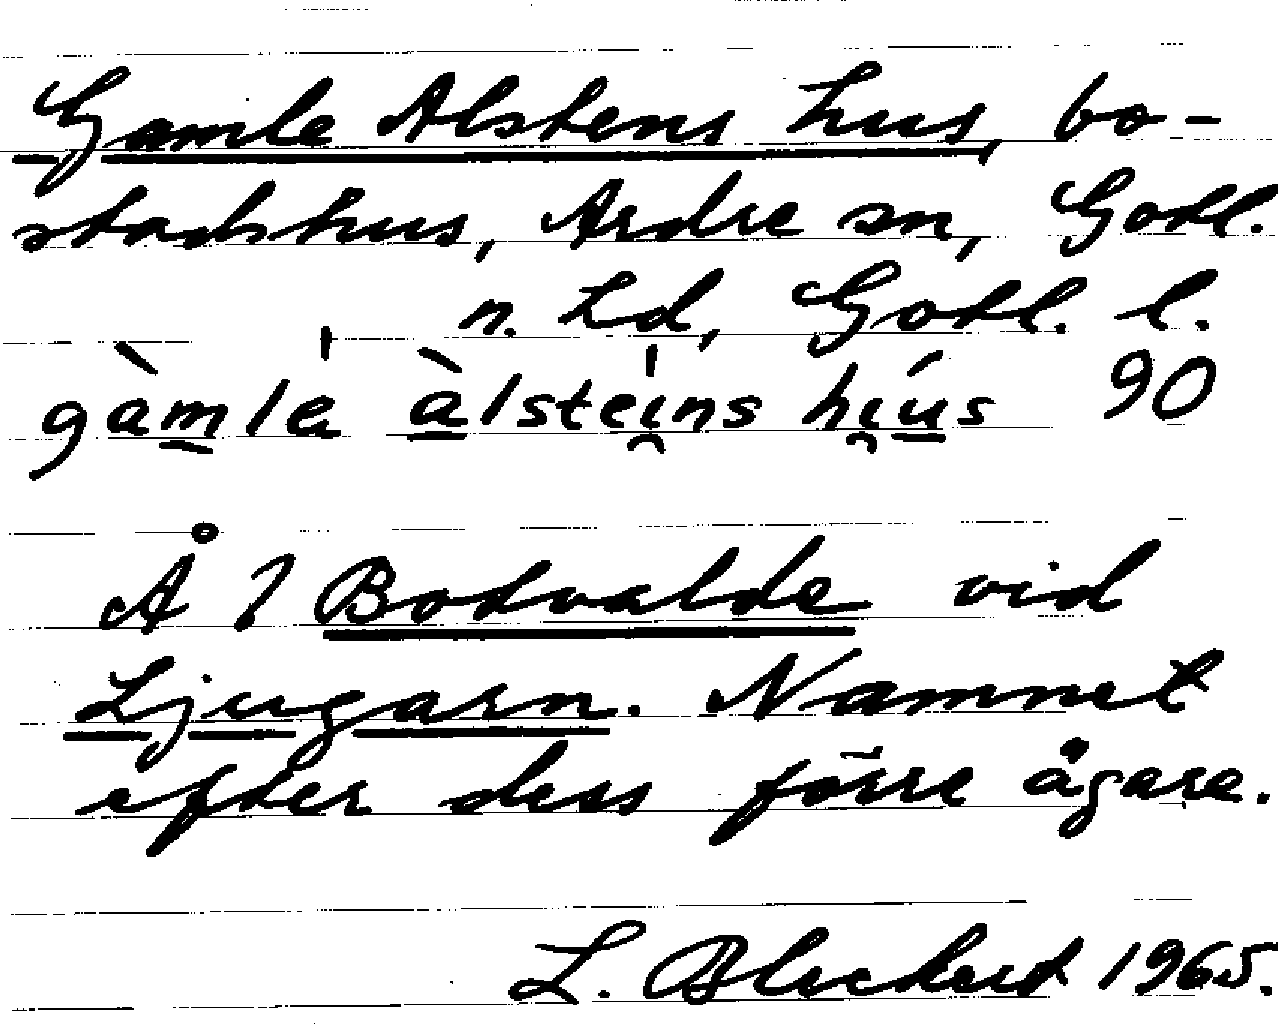 Gamle Alstens hus, bo-
stadshus, Ardre sn, Gotl.
n. hd, Gotl. l.
gàmlė àlstei̯ns hi̯ús 90
Å 2 Botvalde vid
Ljugarn. Namnet
efter dess förre ägare.
L. Bleckert 1965.